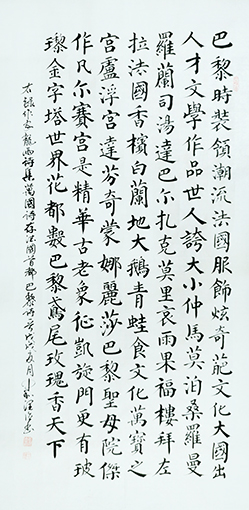 巴黎時裝領潮流法國服飾炫奇葩文化大國出
人才文學作品世人誇大小仲馬莫泊桑羅曼
羅蘭司湯達巴尔扎克莫里哀雨果福樓拜左
拉法國香檳白蘭地大鵝青蛙食文化萬寶之
宮盧浮宮達芬奇蒙娜麗莎巴黎聖母院傑
作凡尔赛宮是精華古老象征凱旋門更有玻
瓈金字塔世界花都數巴黎鳶尾玫瑰香天下
右錄作家龍雨詩集萬國詩存法國首都巴黎詩